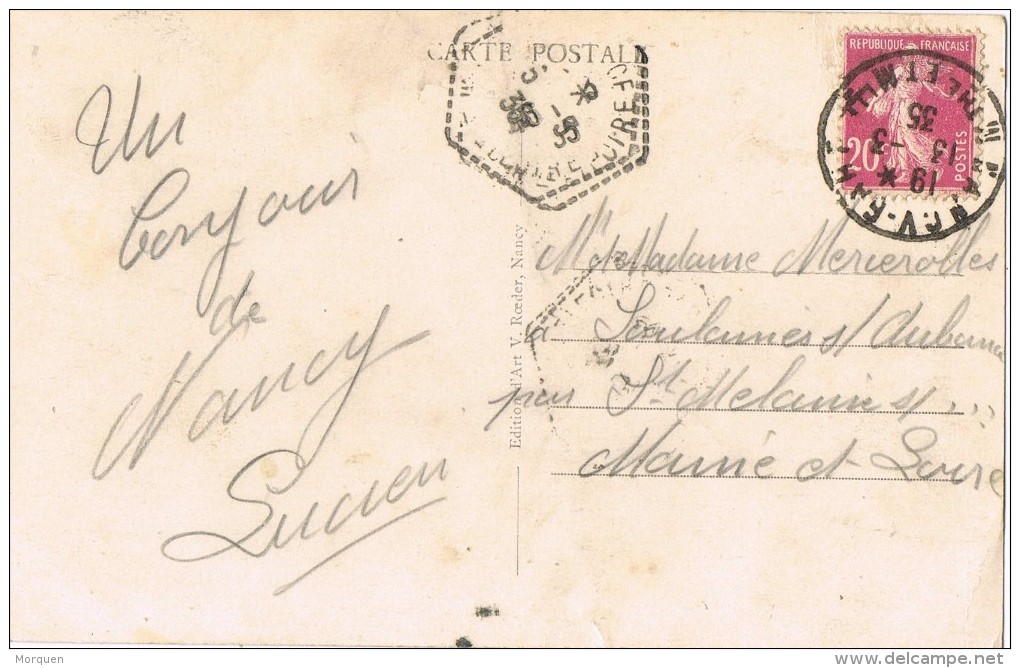 CARTE POSTALE
Un
bonjour
de
Nancy
Lucien
Edition d'Art V. Rœder, Nancy
REPUBLIQUE FRANÇAISE
20
POSTES
19
13 - 3
35
Mr Madame Merierolles
à Soulaines s/ Aubance
par St Melaine s/ ...
Maine et Loire
Morquen
delcampe.net